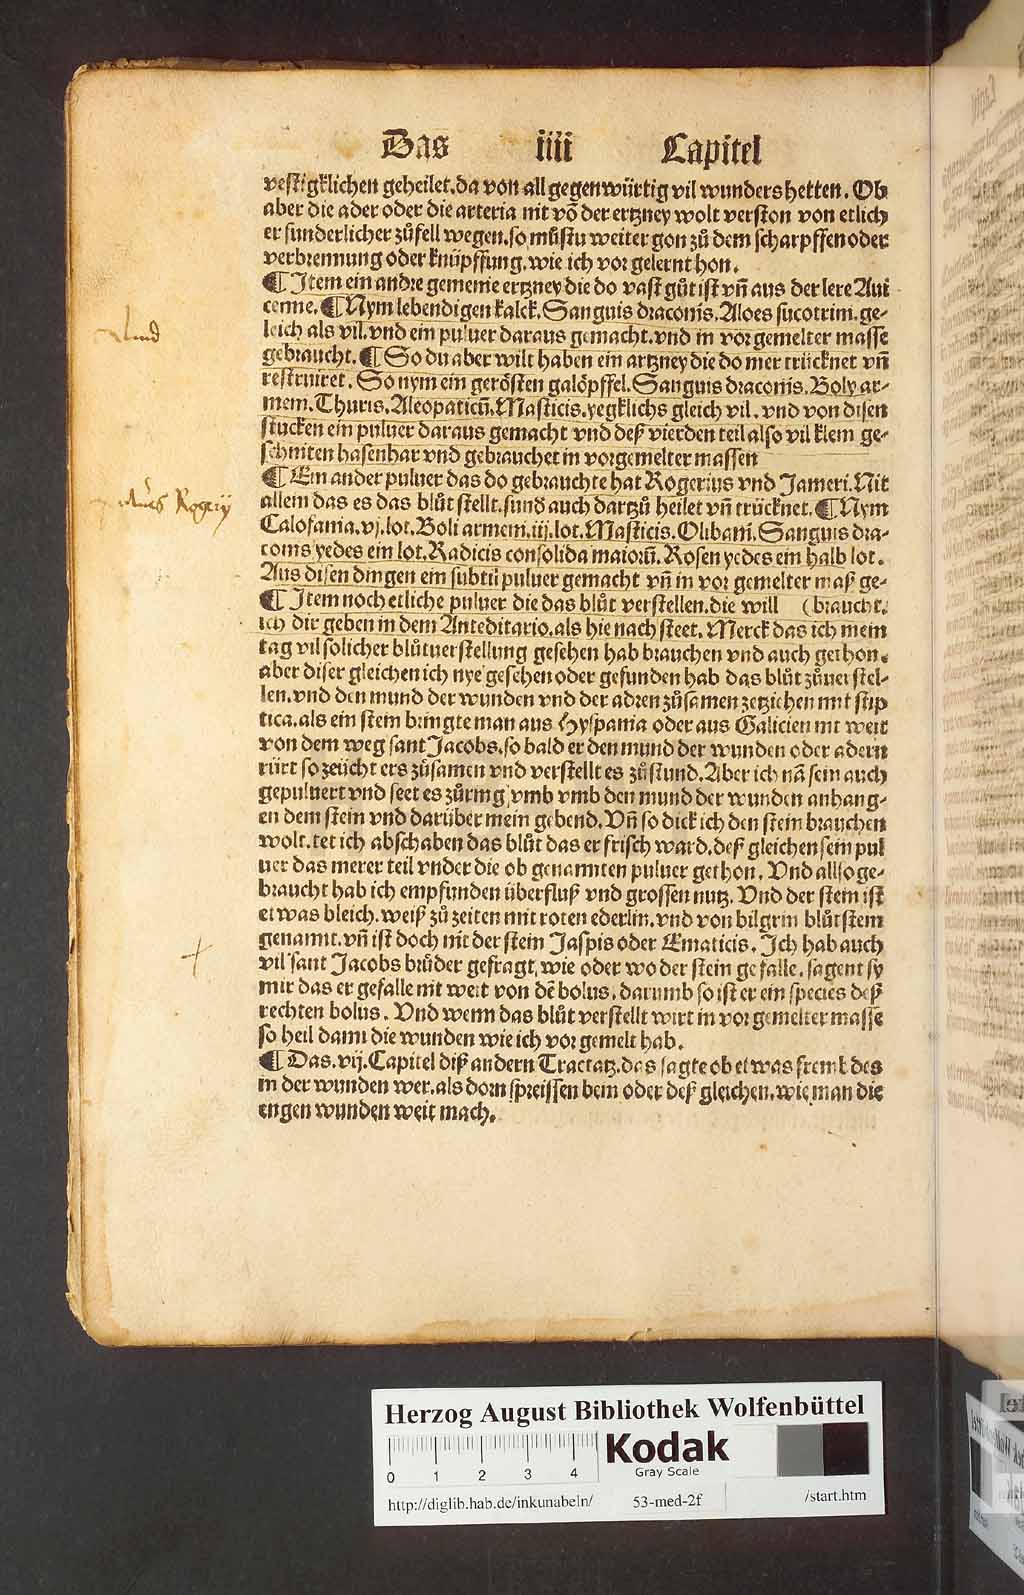 Das iiii Capitel
vestigklichen geheilet.da von all gegenwürtig vil wunders hetten. Ob
aber die ader oder die arteria nit võ der ertzney wolt verston von etlich
er sunderlicher zůfell wegen.so můstu weiter gon zů dem scharpffen oder
verbrennung oder knüpffung.wie ich vor gelernt hon.
¶ Item ein andre gemeine ertzney die do vast gůt ist vñ aus der lere Aui
cenne.¶ Nym lebendigen kalck.Sanguis draconis.Aloes sucotrini.ge-
leich als vil.vnd ein puluer daraus gemacht.vnd in vorgemelter masse
gebraucht.¶ So du aber wilt haben ein artzney die do mer trücknet vñ
restruiret. So nym ein gerösten galöpffel.Sanguis draconis.Boly ar-
meni.Thuris.Aleopaticũ.Masticis.yegklichs gleich vil.vnd von disen
stucken ein puluer daraus gemacht vnd deß vierden teil also vil klein ge-
schniten hasenhar vnd gebrauchet in vorgemelter massen
¶ Ein ander puluer das do gebrauchte hat Rogerius vnd Jameri.Nit
allein das es das blůt stellt.sund auch dartzů heilet vñ trücknet.¶ Nym
Calofania.vj.lot.Boli armeni.iij.lot.Masticis.Olibani.Sanguis dra-
conis yedes ein lot.Radicis consolida maiorũ.Rosen yedes ein halb lot.
Aus disen dingen ein subtil puluer gemacht vñ in vor gemelter maß ge-
¶ Item noch etliche puluer die das blůt verstellen.die will (braucht.
ich dir geben in dem Anteditario.als hie nach steet. Merck das ich mein
tag vil solicher blůtuerstellung gesehen hab brauchen vnd auch gethon.
aber diser gleichen ich nye gesehen oder gefunden hab das blůt zůuerstel-
len.vnd den mund der wunden vnd der adren zůsamen zetziehen mit stip
tica.als ein stein bringte man aus Hyspania oder aus Galicien nit weit
von dem weg sant Jacobs.so bald er den mund der wunden oder adern
rürt so zeücht ers zůsamen vnd verstellt es zůstund.Aber ich nã sein auch
gepuluert vnd seet es zůring vmb vmb den mund der wunden anhang-
en dem stein vnd darüber mein gebend.Vñ so dick ich den stein brauchen
wolt.tet ich abschaben das blůt das er frisch ward.deß gleichen sein pul
uer das merer teil vnder die ob genannten puluer gethon. Vnd allso ge-
braucht hab ich empfunden überfluß vnd grossen nutz. Vnd der stein ist
etwas bleich.weiß zů zeiten mit roten ederlin.vnd von bilgrin blůtstein
genannt.vñ ist doch nit der stein Jaspis oder Ematicis. Ich hab auch
vil sant Jacobs brůder gefragt.wie oder wo der stein gefalle.sagent sy
mir das er gefalle nit weit von dẽ bolus.darumb so ist er ein species deß
rechten bolus. Vnd wenn das blůt verstellt wirt in vorgemelter masse
so heil dann die wunden wie ich vor gemelt hab.
¶ Das.vij.Capitel diß andern Tractatz.das sagte ob etwas frembdes
in der wunden wer.als dorn spreissen bein oder deß gleichen.wie man die
engen wunden weit mach.
Rogerij
Herzog August Bibliothek Wolfenbüttel
0 1 2 3 4
Kodak
Gray Scale
http://diglib.hab.de/inkunabeln/ 53-med-2f /start.htm